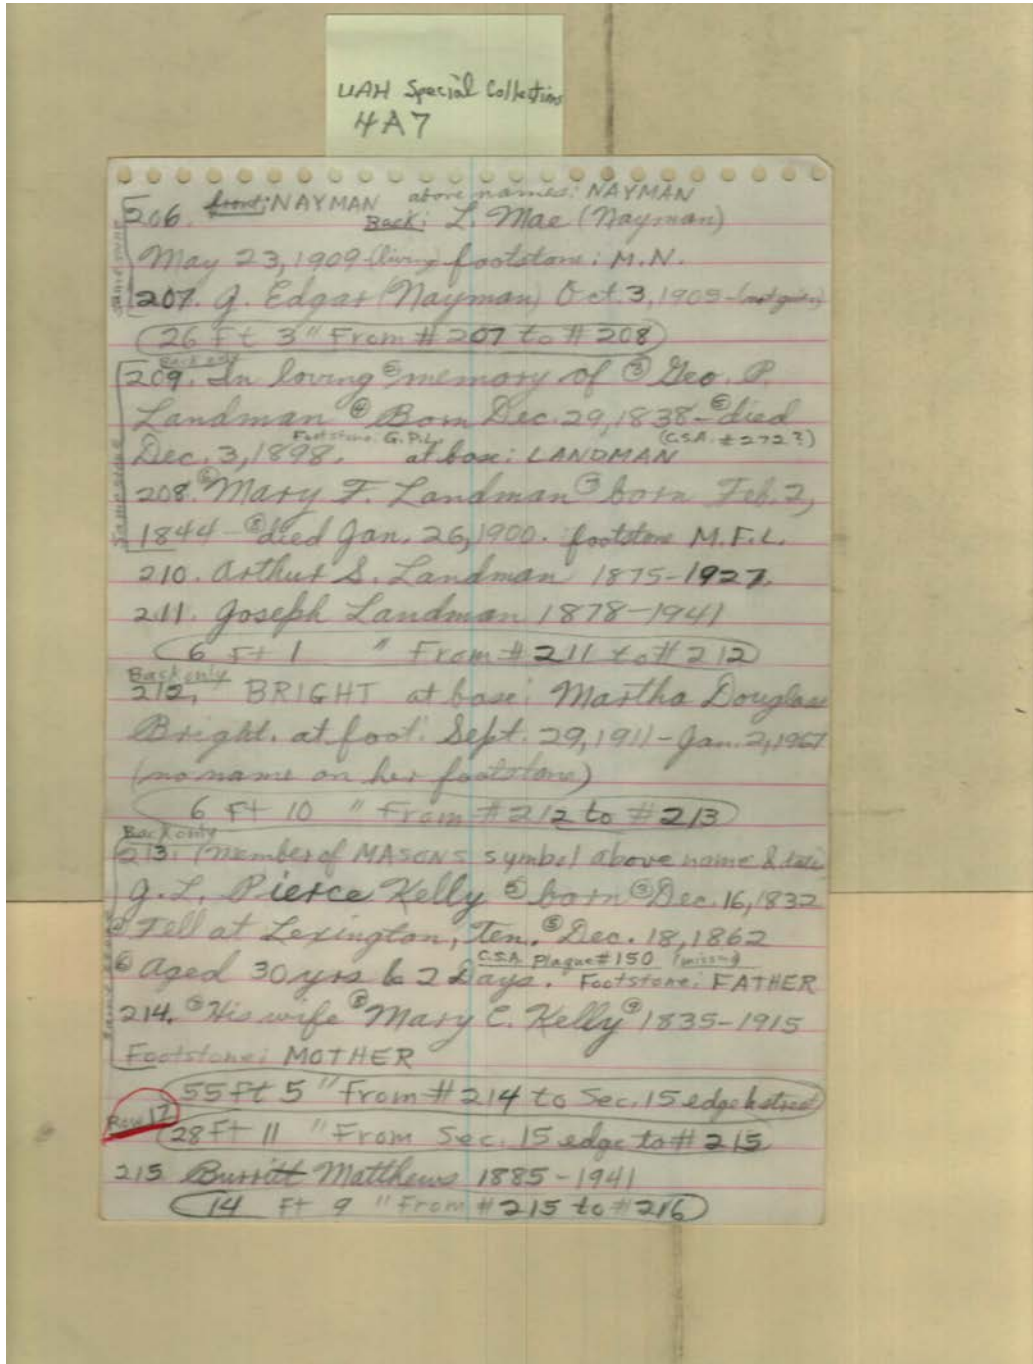 UAH Special Collections
4A7
front: NAYMAN above names: NAYMAN
206. Back: L. Mae (Nayman)
May 23, 1909 (living) footstone: M.N.
207. G. Edgar (Nayman) Oct. 3, 1909 - (not given)
26 Ft 3 " From # 207 to # 208
Back only
209. In loving ② memory of ③ Geo. P.
Landman ④ Born Dec. 29, 1838 - ⑤ died
Footstone: G.P.L. (C.S.A. #272?)
Dec. 3, 1898. at base: LANDMAN
208. ② Mary F. Landman ③ born Feb. 2,
1844 - died Jan. 26, 1900. footstone M.F.L.
same side
210. Arthur S. Landman 1875-1927.
211. Joseph Landman 1878-1941
6 Ft 1 " From # 211 to # 212
Back only
212. BRIGHT at base: Martha Douglass
Bright. at foot: Sept. 29, 1911 - Jan. 2, 1967
(no name on her footstone)
6 Ft 10 " From # 212 to # 213
Back only
213. (Member of MASONS symbol above name & date
G. L. Pierce Kelly ② born ③ Dec. 16, 1832
④ Fell at Lexington, Ten. ⑤ Dec. 18, 1862
C.S.A. Plaque #150 (missing)
⑥ Aged 30 yrs & 2 Days. Footstone: FATHER
214. His wife Mary C. Kelly 1835-1915
Footstone: MOTHER
55 Ft 5 " From # 214 to Sec. 15 edge & street
Row 17
28 Ft 11 " From Sec. 15 edge to # 215
215 Burritt Matthews 1885-1941
14 Ft 9 " From # 215 to # 216